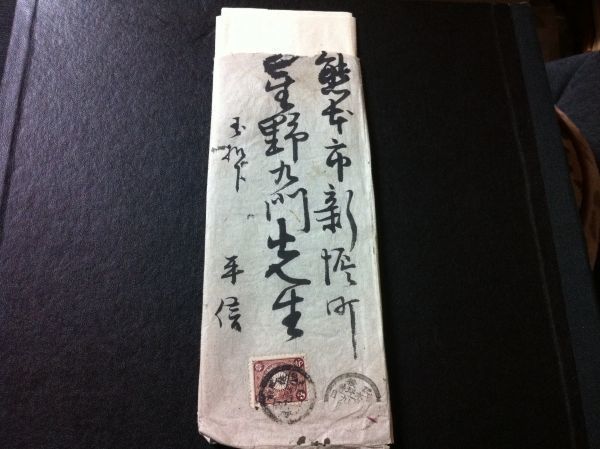 熊本市新桜町
星野九門先生
玉机下
平信